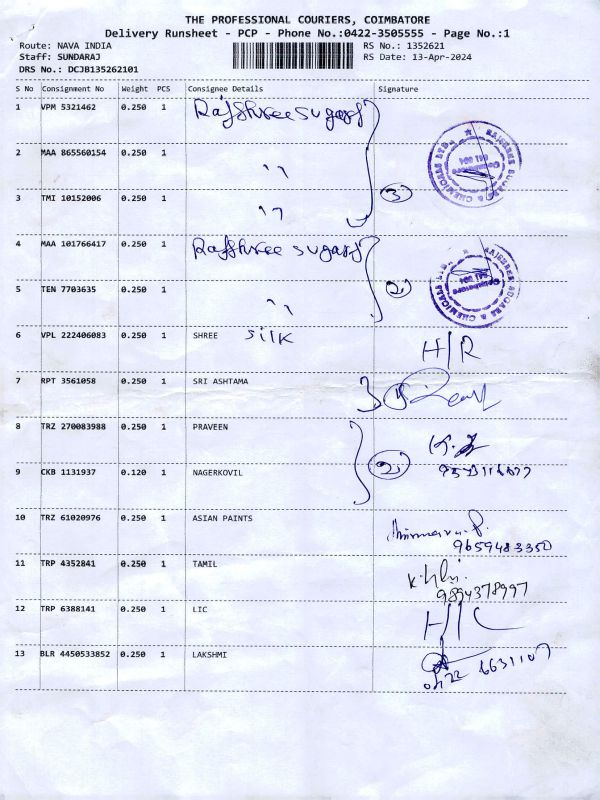 THE PROFESSIONAL COURIERS, COIMBATORE
Delivery Runsheet - PCP - Phone No.:0422-3505555 - Page No.:1
Route: NAVA INDIA RS No.: 1352621
Staff: SUNDARAJ RS Date: 13-Apr-2024
DRS No.: DCJB135262101
S No Consignment No Weight PCS Consignee Details Signature
1 VPM 5321462 0.250 1 Rajshree sugars
2 MAA 865560154 0.250 1 ,,
3 TMI 10152006 0.250 1 ,, 3
4 MAA 101766417 0.250 1 Rajshree sugars
5 TEN 7703635 0.250 1 ,, 2
6 VPL 222406083 0.250 1 SHREE silk H/R
7 RPT 3561058 0.250 1 SRI ASHTAMA
8 TRZ 270083988 0.250 1 PRAVEEN
9 CKB 1131937 0.120 1 NAGERKOVIL 2
10 TRZ 61020976 0.250 1 ASIAN PAINTS
9659483350
11 TRP 4352841 0.250 1 TAMIL
9894378997
12 TRP 6388141 0.250 1 LIC
13 BLR 4450533852 0.250 1 LAKSHMI
0422 6631107